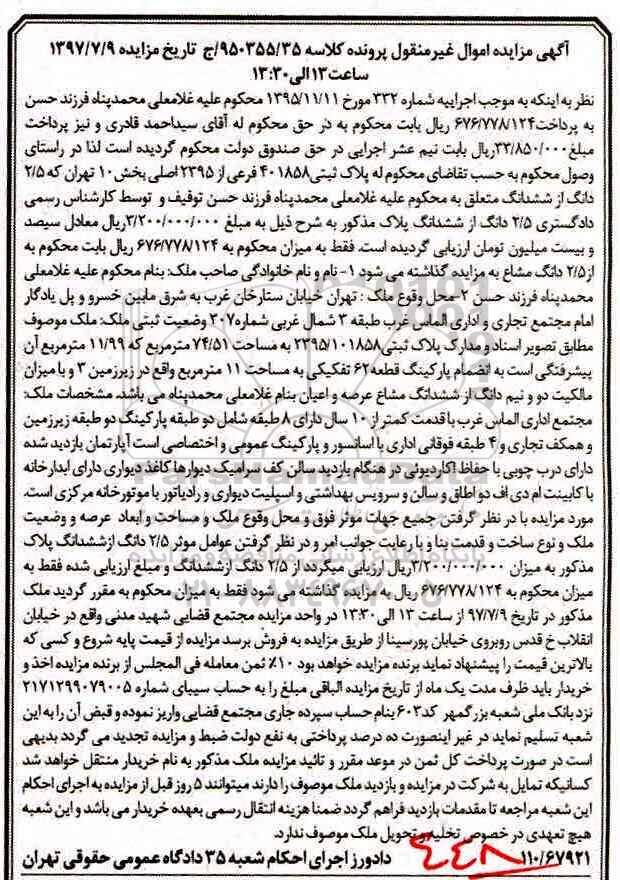 آگهی مزایده اموال غیرمنقول پرونده کلاسه ۹۵۰۳۵۵/۳۵/ج تاریخ مزایده ۱۳۹۷/۷/۹
ساعت ۱۳ الی ۱۳:۳۰
نظر به اینکه به موجب اجراییه شماره ۳۳۲ مورخ ۱۳۹۵/۱۱/۱۱ محکوم علیه غلامعلی محمدپناه فرزند حسن
به پرداخت ۶۷۶/۷۷۸/۱۲۴ ریال بابت محکوم به در حق محکوم له آقای سیداحمد قادری و نیز پرداخت
مبلغ ۳۳/۸۵۰/۰۰۰ ریال بابت نیم عشر اجرایی در حق صندوق دولت محکوم گردیده است لذا در راستای
وصول محکوم به حسب تقاضای محکوم له پلاک ثبتی ۴۰۱۸۵۸ فرعی از ۲۳۹۵ اصلی بخش ۱۰ تهران که ۲/۵
دانگ از ششدانگ متعلق به محکوم علیه غلامعلی محمدپناه فرزند حسن توقیف و توسط کارشناس رسمی
دادگستری ۲/۵ دانگ از ششدانگ پلاک مذکور به شرح ذیل به مبلغ ۳/۲۰۰/۰۰۰/۰۰۰ ریال معادل سیصد
و بیست میلیون تومان ارزیابی گردیده است. فقط به میزان محکوم به ۶۷۶/۷۷۸/۱۲۴ ریال بابت محکوم به
از ۲/۵ دانگ مشاع به مزایده گذاشته می شود ۱- نام و نام خانوادگی صاحب ملک: بنام محکوم علیه غلامعلی
محمدپناه فرزند حسن ۲-محل وقوع ملک : تهران خیابان ستارخان غرب به شرق مابین خسرو و پل یادگار
امام مجتمع تجاری و اداری الماس غرب طبقه ۳ شمال غربی شماره ۲۰۷ وضعیت ثبتی ملک: ملک موصوف
مطابق تصویر اسناد و مدارک پلاک ثبتی ۲۳۹۵/۱۰۱۸۵۸ به مساحت ۷۴/۵۱ مترمربع که ۱۱/۹۹ مترمربع آن
پیشرفتگی است به انضمام پارکینگ قطعه ۶۲ تفکیکی به مساحت ۱۱ مترمربع واقع در زیرزمین ۳ و با میزان
مالکیت دو و نیم دانگ از ششدانگ مشاع عرصه و اعیان بنام غلامعلی محمدپناه می باشد. مشخصات ملک:
مجتمع اداری الماس غرب با قدمت کمتر از ۱۰ سال دارای ۸ طبقه شامل دو طبقه پارکینگ دو طبقه زیرزمین
و همکف تجاری و ۴ طبقه فوقانی اداری با آسانسور و پارکینگ عمومی و اختصاصی است آپارتمان بازدید شده
دارای درب چوبی با حفاظ آکاردیونی در هنگام بازدید سالن کف سرامیک دیوارها کاغذ دیواری دارای آبدارخانه
با کابینت ام دی اف دو اطاق و سالن و سرویس بهداشتی و اسپلیت دیواری و رادیاتور با موتورخانه مرکزی است.
مورد مزایده با در نظر گرفتن جمیع جهات موثر فوق و محل وقوع ملک و مساحت و ابعاد عرصه و وضعیت
ملک و نوع ساخت و قدمت بنا و با رعایت جوانب امر و در نظر گرفتن عوامل موثر ۲/۵ دانگ از ششدانگ پلاک
مذکور به میزان ۳/۲۰۰/۰۰۰/۰۰۰ ریال ارزیابی میگردد از ۲/۵ دانگ ازششدانگ و مبلغ ارزیابی شده فقط به
میزان محکوم به ۶۷۶/۷۷۸/۱۲۴ ریال به مزایده گذاشته می شود فقط به میزان محکوم به مقرر گردید ملک
مذکور در تاریخ ۹۷/۷/۹ از ساعت ۱۳ الی ۱۳:۳۰ در واحد مزایده مجتمع قضایی شهید مدنی واقع در خیابان
انقلاب خ قدس روبروی خیابان پورسینا از طریق مزایده به فروش برسد مزایده از قیمت پایه شروع و کسی که
بالاترین قیمت را پیشنهاد نماید برنده مزایده خواهد بود ۱۰٪ ثمن معامله فی المجلس از برنده مزایده اخذ و
خریدار باید ظرف مدت یک ماه از تاریخ مزایده الباقی مبلغ را به حساب سیبای شماره ۲۱۷۱۲۹۹۰۷۹۰۰۵
نزد بانک ملی شعبه بزرگمهر کد ۶۰۳ بنام حساب سپرده جاری مجتمع قضایی واریز نموده و قبض آن را به این
شعبه تسلیم نماید در غیر اینصورت ده درصد پرداختی به نفع دولت ضبط و مزایده تجدید می گردد بدیهی
است در صورت پرداخت کل ثمن در موعد مقرر و تائید مزایده ملک مذکور به نام خریدار منتقل خواهد شد
کسانیکه تمایل به شرکت در مزایده و بازدید ملک موصوف را دارند میتوانند ۵ روز قبل از مزایده به اجرای احکام
این شعبه مراجعه تا مقدمات بازدید فراهم گردد ضمنا هزینه انتقال رسمی بعهده خریدار می باشد و این شعبه
هیچ تعهدی در خصوص تخلیه و تحویل ملک موصوف ندارد.
۱۱۰/۶۷۹۲۱ دادورز اجرای احکام شعبه ۳۵ دادگاه عمومی حقوقی تهران
۴۴۸
ParsNamadData
پایگاه اطلاع رسانی مناقصه و مزایده
۰۲۱-۸۸۳۴۹۶۷۰-۵